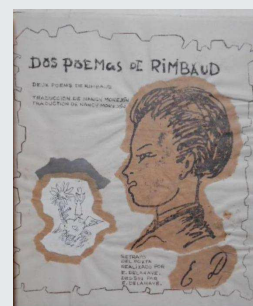 DOS POEMAS DE RIMBAUD
DEUX POEMES DE RIMBAUD
TRADUCCION DE NANCY MOREJON
TRADUCTION DE NANCY MOREJON
RETRATO
DEL POETA
REALIZADO POR
E. DELAHAYE.
DESSIN PAR
E. DELAHAYE.
E D